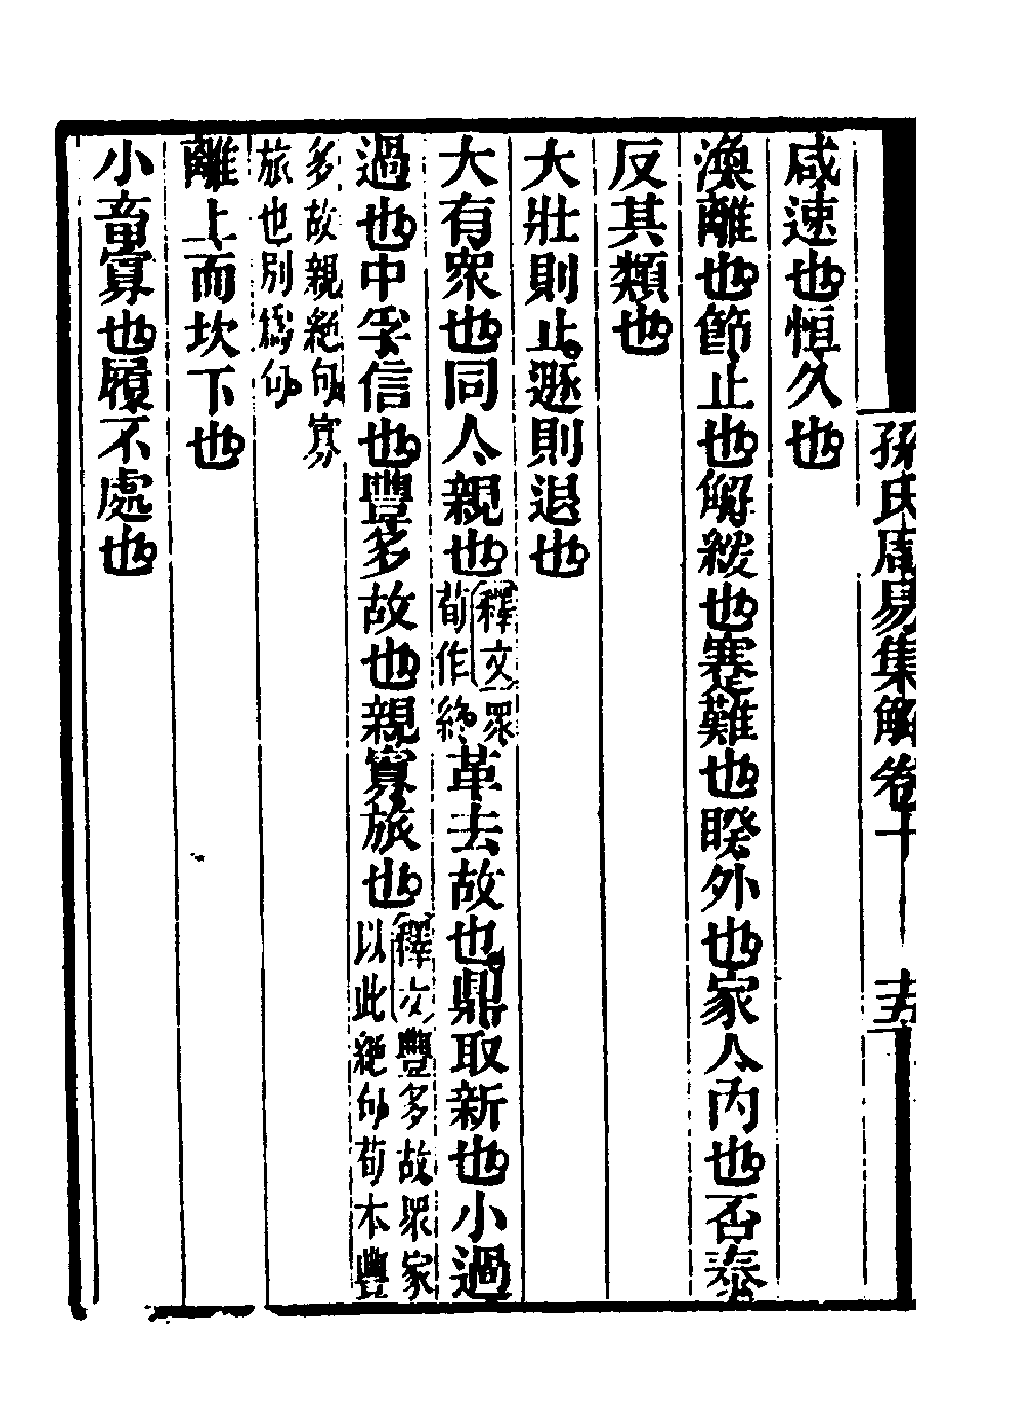 孫氏周易集解卷十 十五
咸速也恒久也
渙離也節止也解緩也蹇難也睽外也家人內也否泰
反其類也
大壯則止遯則退也
大有衆也同人親也釋文衆荀作終革去故也鼎取新也小過
過也中孚信也豐多故也親寡旅也釋文豐多故眾家以此絕句荀本豐
多故親絕句寡旅也別爲句
離上而坎下也
小畜寡也履不處也